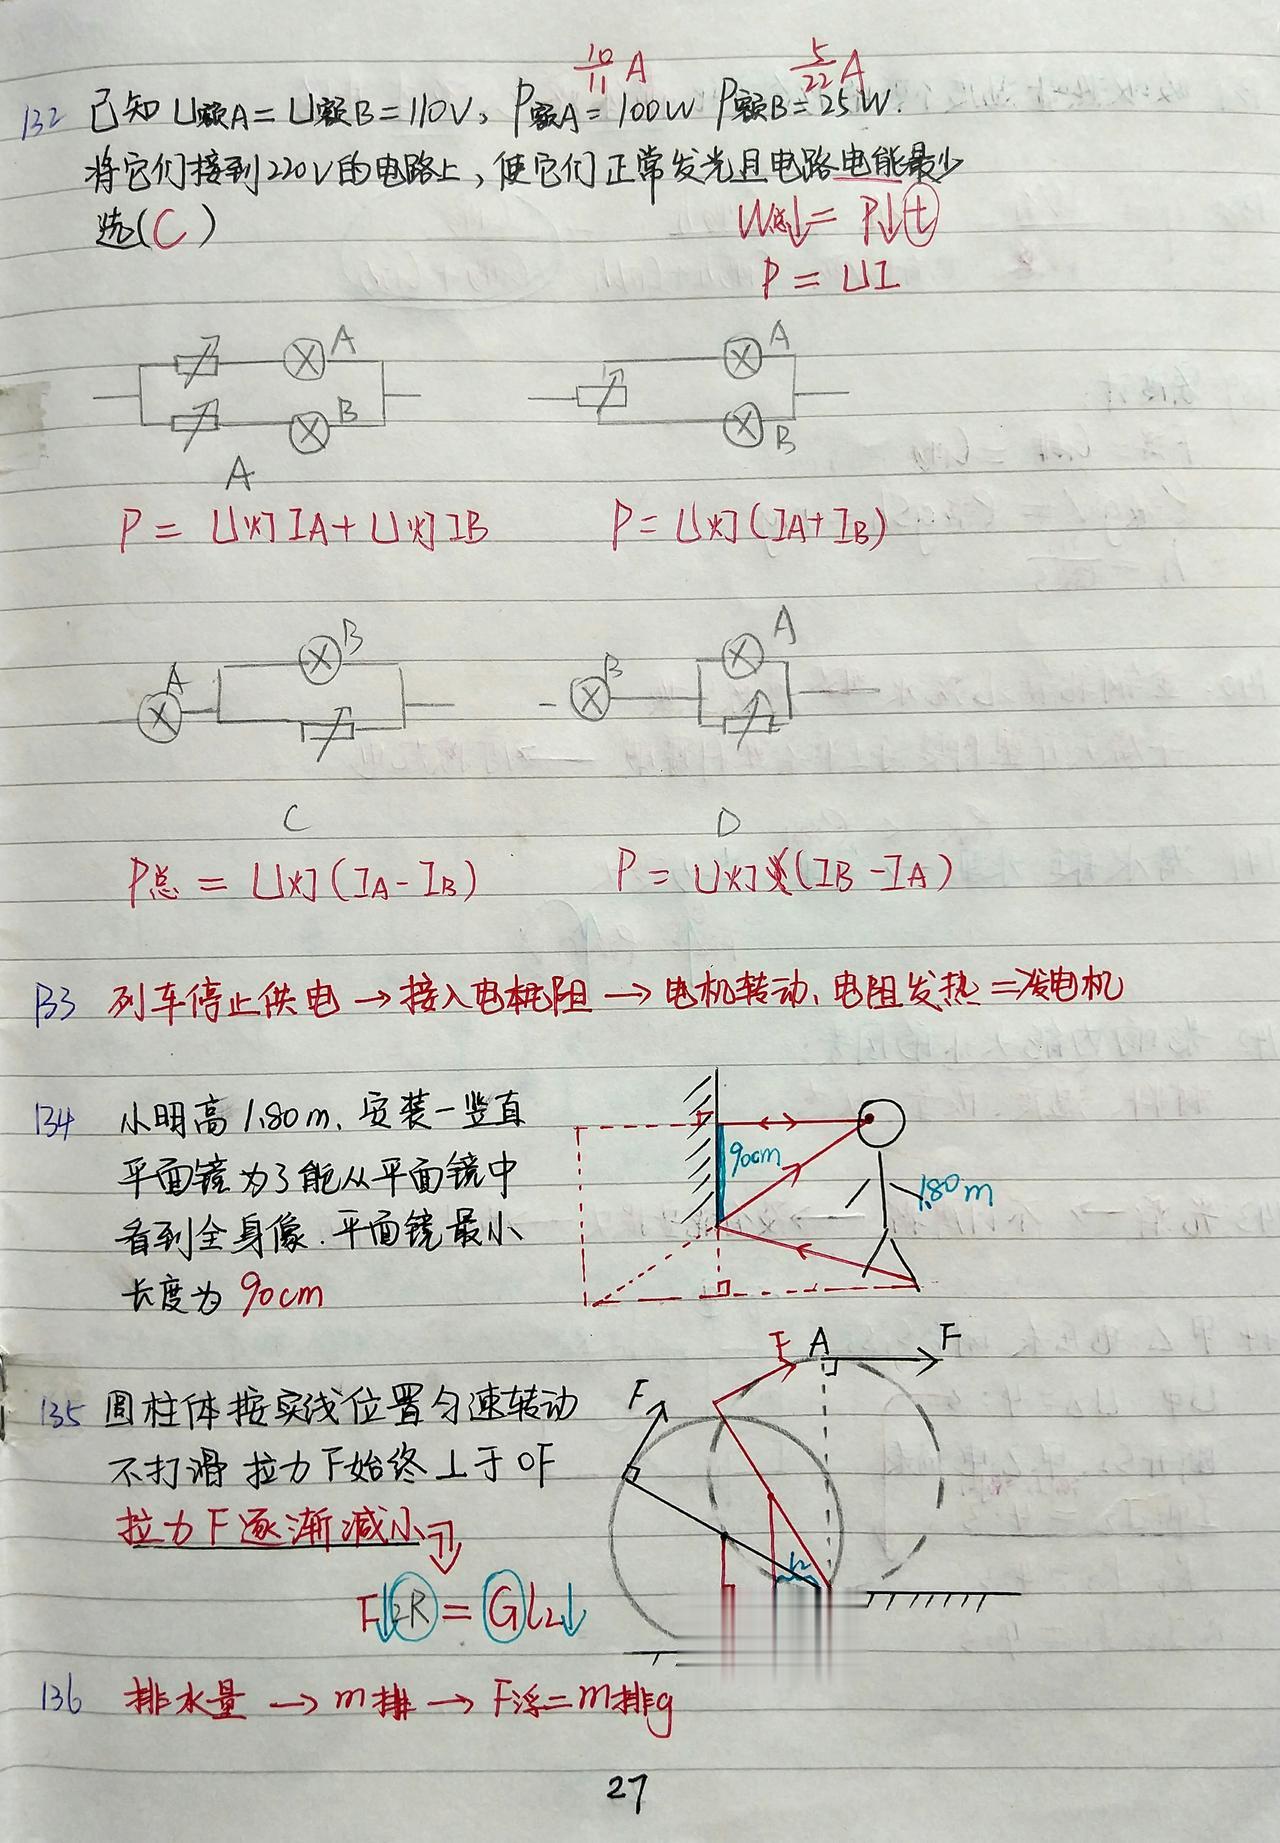 10/11 A 5/22 A
132 已知 U额A=U额B=110V, P额A=100W P额B=25W.
将它们接到220V的电路上,使它们正常发光且电路电能最少
选(C)
W总↓=P↓t
P=UI
A A
B B
A
P=U灯IA+U灯IB P=U灯(IA+IB)
B A
A B
C D
P总=U灯(IA-IB) P=U灯(IB-IA)
133 列车停止供电→接入电阻→电机转动、电阻发热=发电机
134 小明高1.80m,安装一竖直
平面镜为了能从平面镜中
看到全身像.平面镜最小
长度为90cm
90cm
1.80m
F A F
135 圆柱体按实线位置匀速转动 F
不打滑 拉力F始终⊥于OF
拉力F逐渐减小
F↓2R=GL2↓
136 排水量→m排→F浮=m排g
27